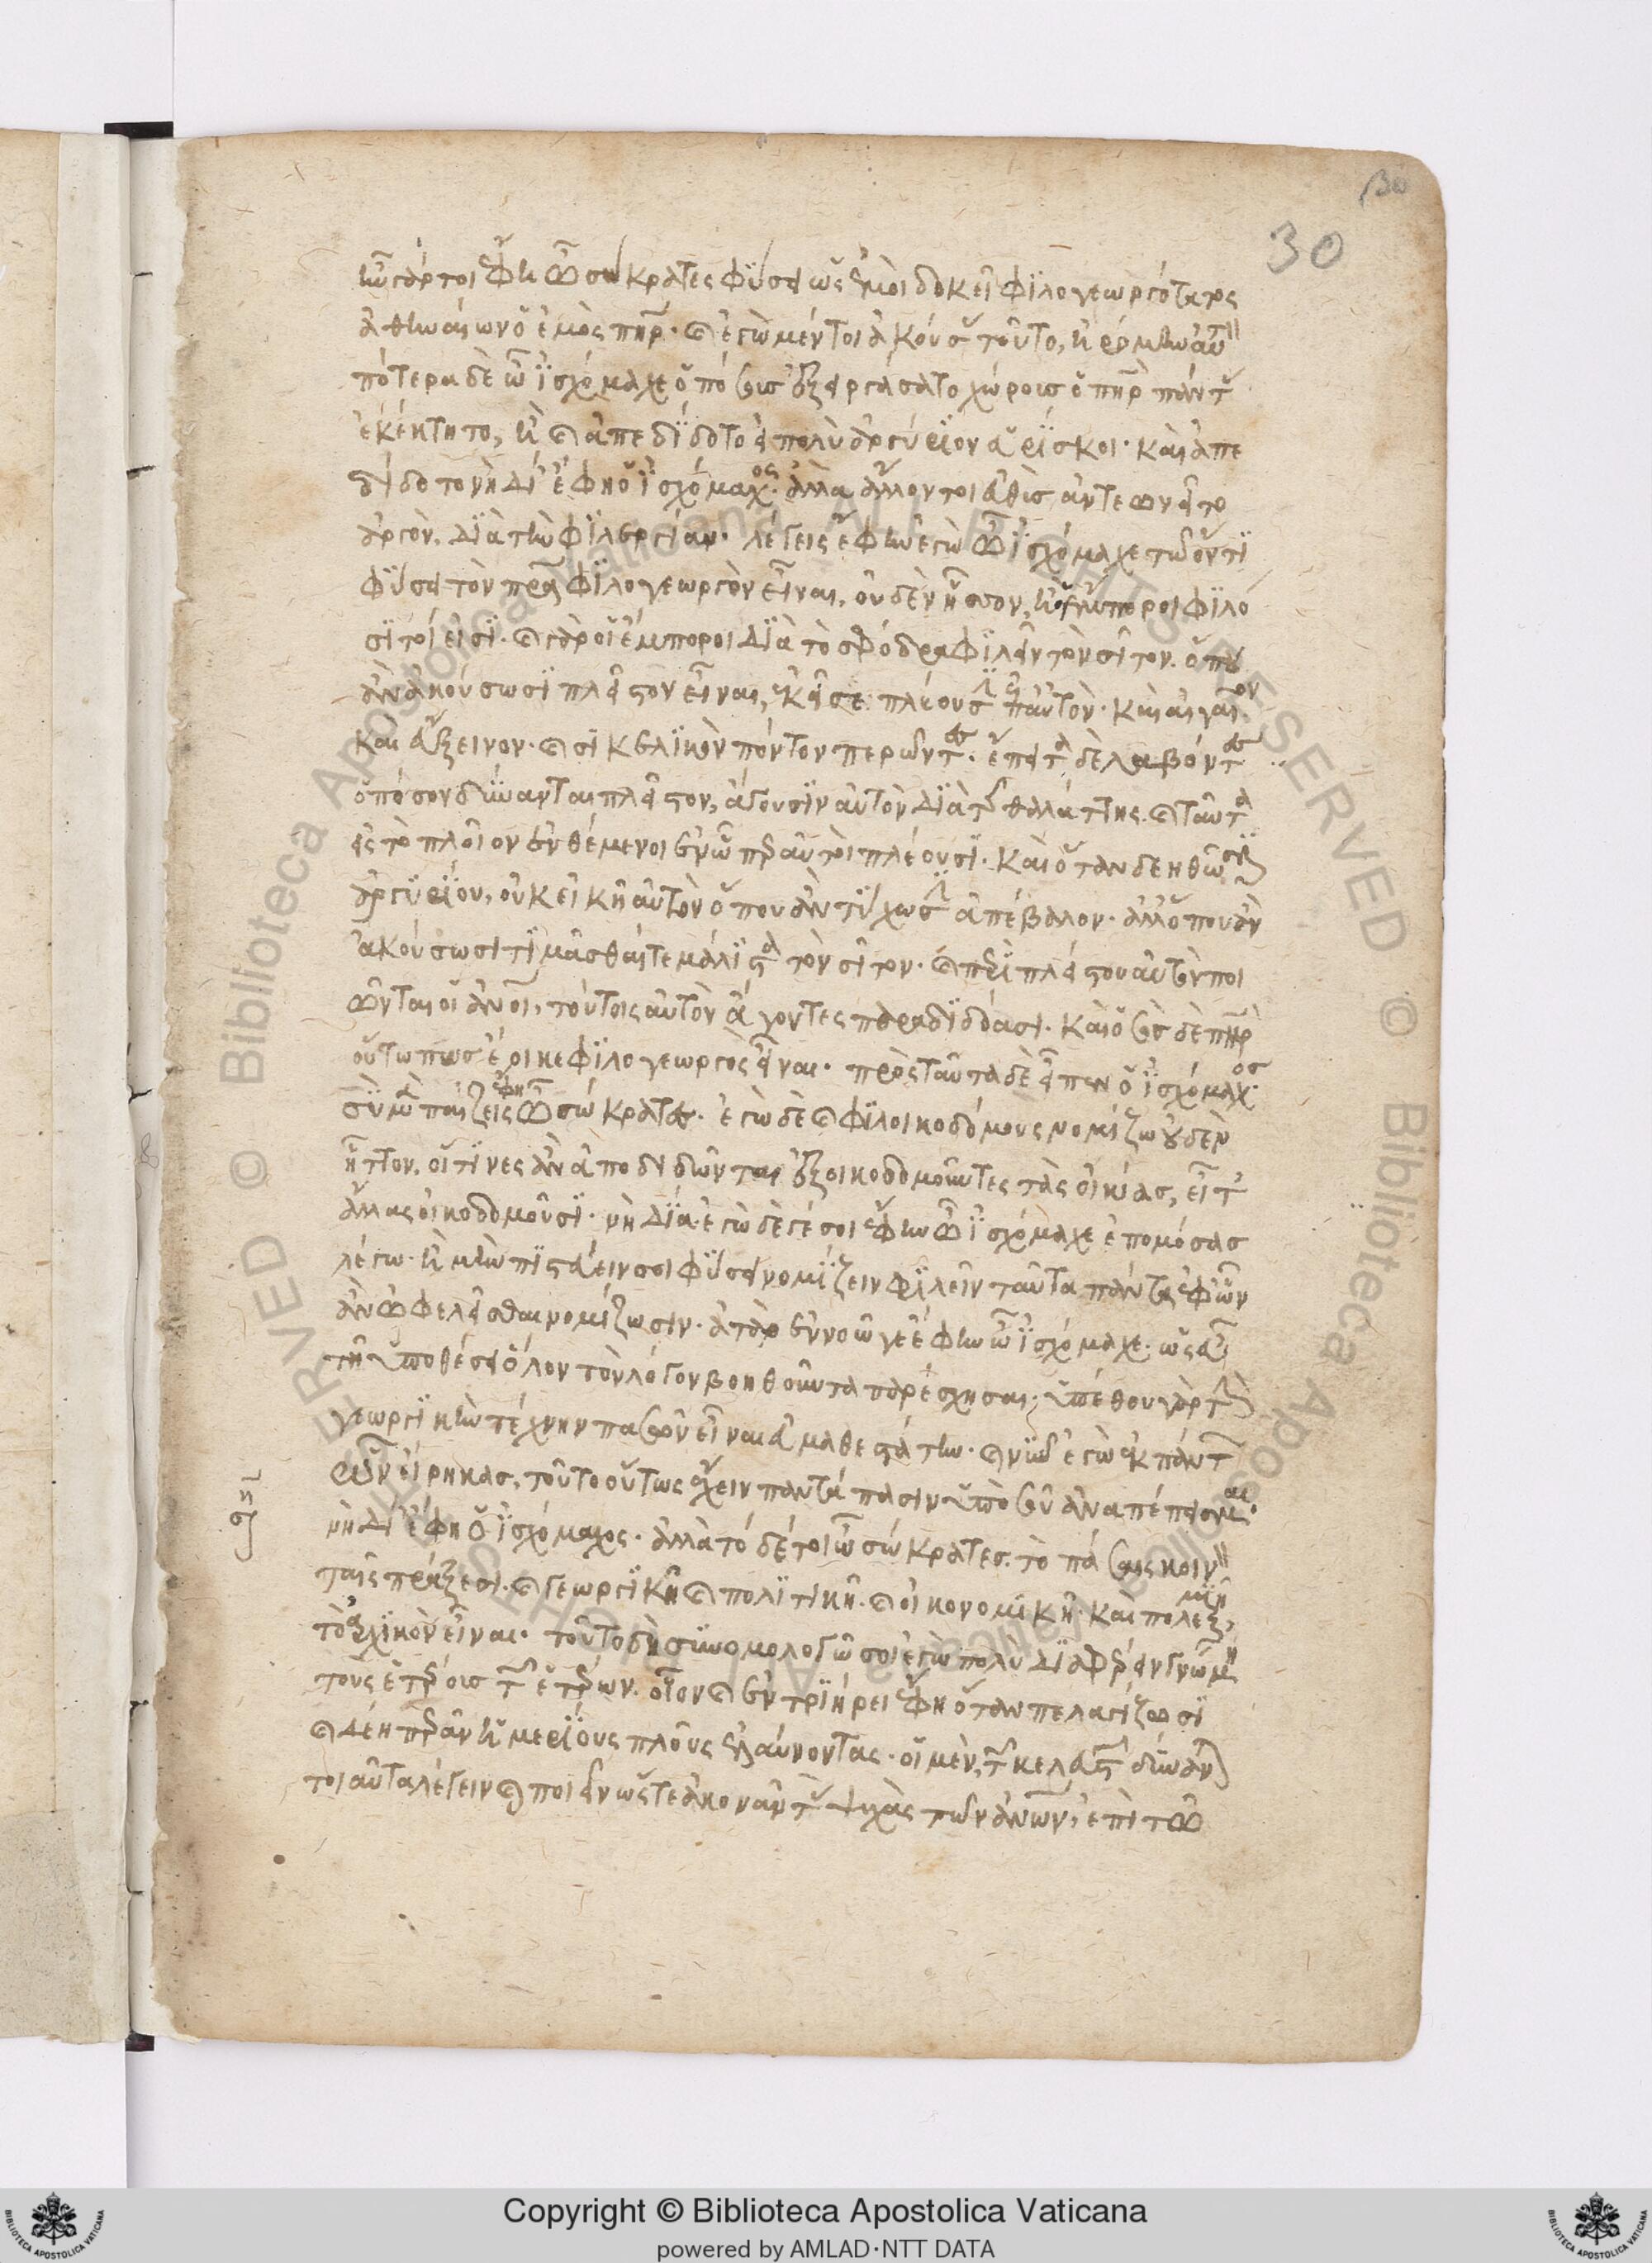 30
30
ἦν γάρ τοι ἔφη ὦ σώκρατες φύσει ὡς ἐμοὶ δοκεῖ φιλογεωργότατος
ἀθηναίων ὁ ἐμὸς πηρ. καὶ ἐγὼ μέντοι ἀκούσας τοῦτο, ἠρόμην αὐτ
πότερα δὲ ὦ ἰσχόμαχε ὁπόσους ἐξειργάσατο χώρους ὁ πηρ πάντας
ἐκέκτητο, ἢ καὶ ἀπεδίδοτο εἰ πολὺ ἀργύριον εὑρίσκοι. καὶ ἀπε
δίδοτο νὴ δί' ἔφη ὁ ἰσχόμαχος. ἀλλὰ ἄλλον τοι εὐθὺς ἀντεωνεῖτο
ἀργὸν, διὰ τὴν φιλεργίαν. λέγεις ἔφην ἐγὼ ὦ ἰσχόμαχε τῷ ὄντι
φύσει τὸν πρα φιλογεωργὸν εἶναι, οὐδὲν ἧσσον ἢ οἱ ἔμποροι φιλό
σιτοί εἰσι. καὶ γὰρ οἱ ἔμποροι διὰ τὸ σφόδρα φιλεῖν τὸν σῖτον. ὅπου
ἂν ἀκούσωσι πλεῖστον εἶναι, ἐκεῖσε πλέουσιν ἐπ' αὐτὸν. καὶ αἰγαῖον
καὶ εὔξεινον. καὶ σικελικὸν πόντον περῶντες. ἔπειτα δὲ λαβόντες
ὁπόσον δύνανται πλεῖστον, ἄγουσιν αὐτὸν διὰ τῆς θαλάττης. καὶ ταῦτα
εἰς τὸ πλοῖον ἐνθέμενοι ἐν ᾧπερ αὐτοὶ πλέουσι. καὶ ὅταν δεηθῶσιν
ἀργυρίου, οὐκ εἰκῆ αὐτὸν ὅπου ἂν τύχωσιν ἀπέβαλον. ἀλλ' ὅπου ἂν
ἀκούσωσι τιμᾶσθαί τε μάλιστα τὸν σῖτον. καὶ περὶ πλείστου αὐτὸν ποι
ῶνται οἱ ἄνοι, τούτοις αὐτὸν ἄγοντες παραδιδόασι. καὶ ὁ σὸς δὲ πηρ
οὕτω πως ἔοικε φιλογεωργὸς εἶναι. πρὸς ταῦτα δὲ εἶπεν ὁ ἰσχόμαχος.
σὺ μὲν παίζεις ἔφη ὦ σώκρατες. ἐγὼ δὲ καὶ φιλοικοδόμους νομίζω οὐδὲν
ἧττον, οἵτινες ἂν ἀποδιδῶνται ἐξοικοδομοῦντες τὰς οἰκίας, εἶτ'
ἄλλας οἰκοδομοῦσι. νὴ δία. ἐγὼ δέ γέ σοι ἔφην ὦ ἰσχόμαχε ἐπομόσας
λέγω. ἦ μὴν πιστεύειν σοι φύσει νομίζειν φιλεῖν ταῦτα πάντας ἀφ' ὧν
ἂν ὠφελεῖσθαι νομίζωσιν. ἀτὰρ ἐννοῶ γε ἔφην ὦ ἰσχόμαχε. ὡς εὖ
τῇ ὑποθέσει ὅλον τὸν λόγον βοηθοῦντα παρέσχησαι. ὑπέθου γὰρ τὴν
γεωργικὴν τέχνην πασῶν εἶναι εὐμαθεστάτην. καὶ νῦν ἐγὼ ἐκ πάντων
ὧν εἴρηκας, τοῦτο οὕτως ἔχειν παντάπασιν ὑπὸ σοῦ ἀναπέπεισμαι.
νὴ δί' ἔφη ὁ ἰσχόμαχος. ἀλλὰ τό δέ τοι ὦ σώκρατες. τὸ πάσαις κοινὸν
ταῖς πράξεσι. καὶ γεωργικῇ καὶ πολιτικῇ. καὶ οἰκονομικῇ. καὶ πολεμικῇ,
τὸ ἀρχικὸν εἶναι. τοῦτο δὴ συνομολογῶ σοι ἐγὼ πολὺ διαφέρειν γνώμῃ
τοὺς ἑτέρους τῶν ἑτέρων. οἷον καὶ ἐν τριήρει ἔφη ὅταν πελαγίζωσι
καὶ δέῃ περᾶν ἡμερίους πλοῦς ἐλαύνοντας. οἱ μὲν τῶν κελευστῶν δύναν
τοιαῦτα λέγειν καὶ ποιεῖν ὥστε ἀκονᾶν τὰς ψυχὰς τῶν ἀνων, ἐπὶ τὸ